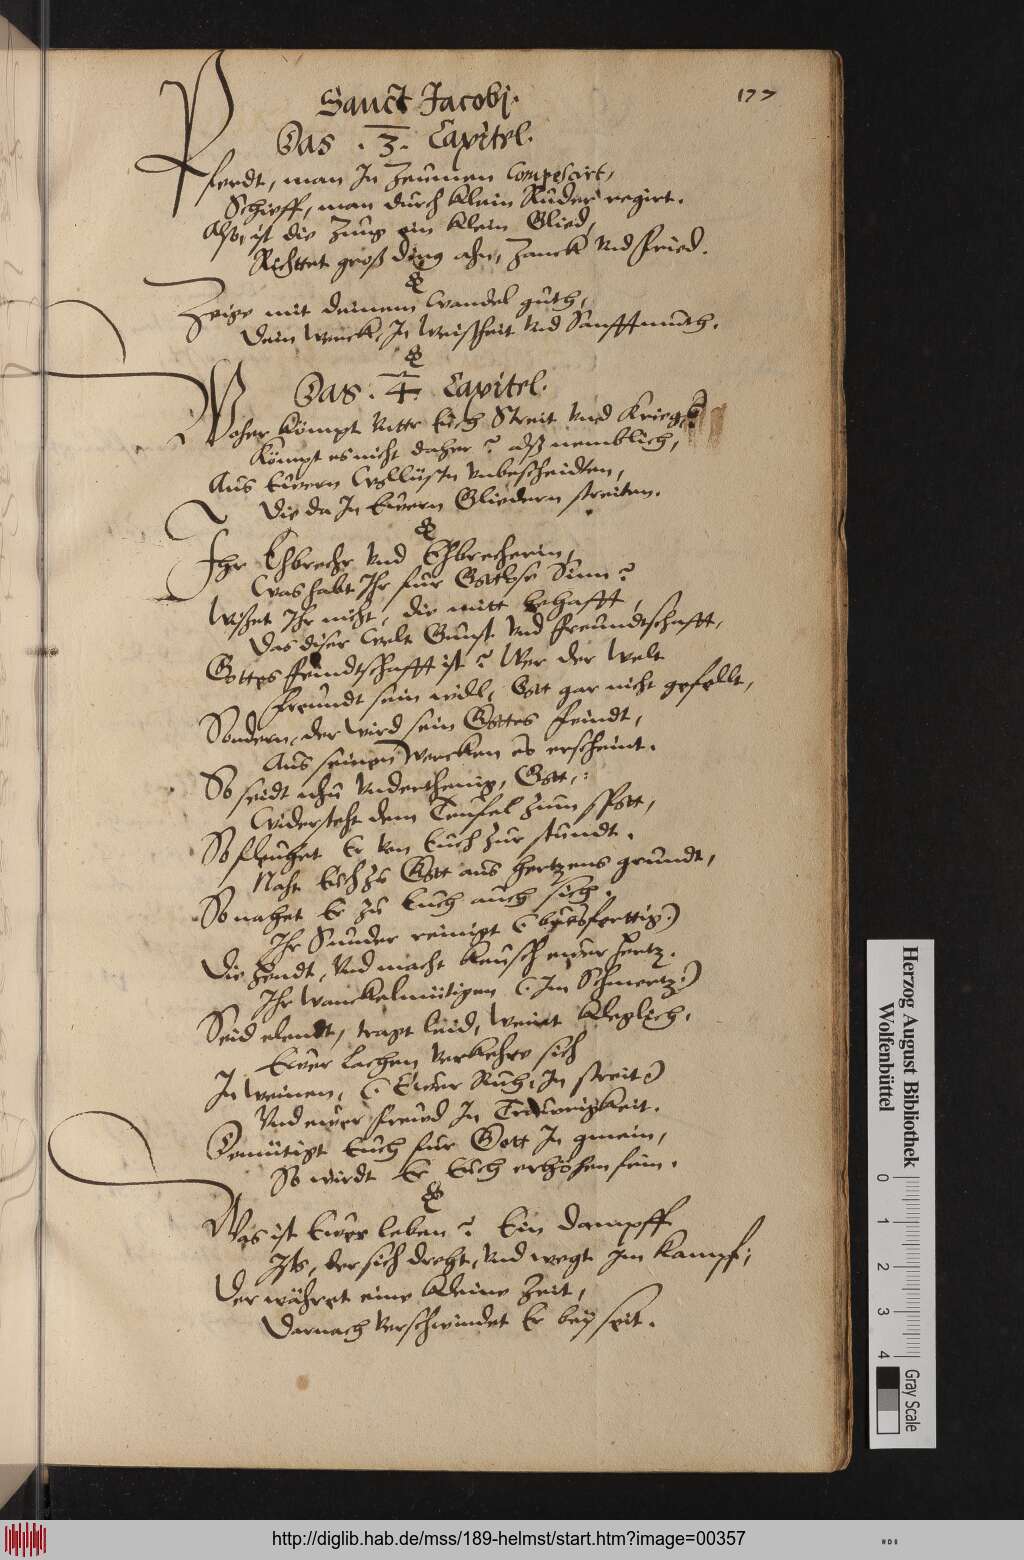 Sanct Jacobi.
177
Das .3. Capitel.
Pferdt, man In Zeumen Compescirt,
Schieff, man durch klein Ruder regirt.
Also, ist die Zung ein klein Glied,
Richttet groß ding ahn, Zanck Vnd fried.
Zeige mit deinem Wandel guth,
Dein Werck, In Weißheit Vnd Sanfftmuth.
Das .4. Capitel.
Woher kömpt Vntter Euch Streit Vnd Krieg,
Kömpt es nicht daher? alß nemblich,
Aus Ewern Wollüsten Vnbescheidten,
Die da In Ewern Gliedern streiten.
Ihr Ehbrecher Vnd Ehbrecherin,
Was habt Ihr für Gottlose Sinn?
Wißet Ihr nicht, die mitt behafft,
Das diser Welt Gunst Vnd freundtschafft,
Gottes feindtschafft ist? Wer der Welt
freundt sein will, Gott gar nicht gefellt,
Sondern, der wird sein Gottes feindt,
Aus seinen Wercken es erscheint.
So seidt nhu Vnderthenig, Gott,
Widersteht dem Teufel zum spott,
So fleuhet Er von Euch zur stundt.
Naht Euch zu Gott aus hertzens grundt,
So nahet Er zu Euch auch sich.
Ihr Sünder reinigt (: busfertig :)
Die Hendt, Vnd macht keusch ewer hertz.
Ihr Wanckelmütigen (: Im Schmertz :)
Seid elendt, tragt leid, Weint kleglich,
Ewer lachen Verkehre sich
In Weinen, (: Ewer Ruh, In streit :)
Vnd ewer freud In Traurigkeit.
Demütigt Euch für Gott In gmein,
So wirdt Er Euch erhöhen fein.
Was ist Ewer leben? Ein dampff
Ists, der sich dreht, Vnd wegt Im kampf;
Der währet eine kleine Zeit,
Darnach Verschwindet Er bey seit.
Herzog August Bibliothek
Wolfenbüttel
0 1 2 3 4
Gray Scale
http://diglib.hab.de/mss/189-helmst/start.htm?image=00357